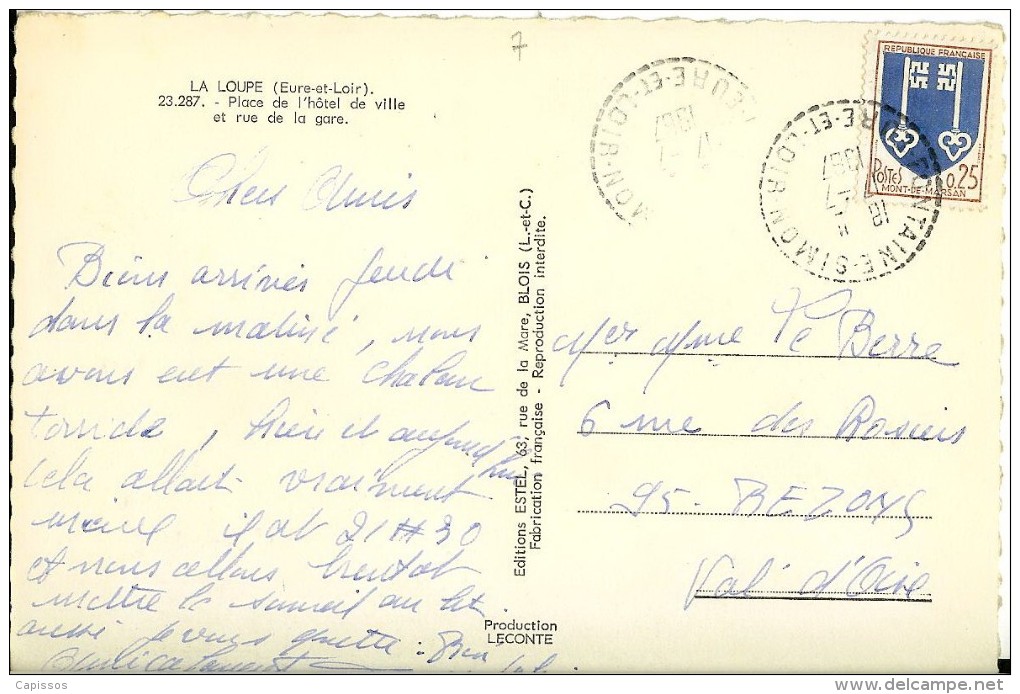 7
LA LOUPE (Eure-et-Loir).
23.287. - Place de l'hôtel de ville
et rue de la gare.
Chers Amis
Biens arrivés Jeudi
dans la matiné, nous
avons eut une chaleur
torride, hier et aujourd'hui
cela allait vraiment
mieux il est 21 H 30
et nous allons bientot
mettre le someil au lit
aussi je vous quitte. Bien
Editions ESTEL, 63, rue de la Mare, BLOIS (L.-et-C.)
Fabrication française - Reproduction interdite.
Production
LECONTE
EURE-ET-LOIR
1967
FONTAINE-SIMON
EURE-ET-LOIR
18
1967
REPUBLIQUE FRANÇAISE
POSTES
0,25
MONT-DE-MARSAN
Mer Mme Le Berre
6 rue des Rosiers
95-BEZONS
Val d'Oise
Capissos
delcampe.net